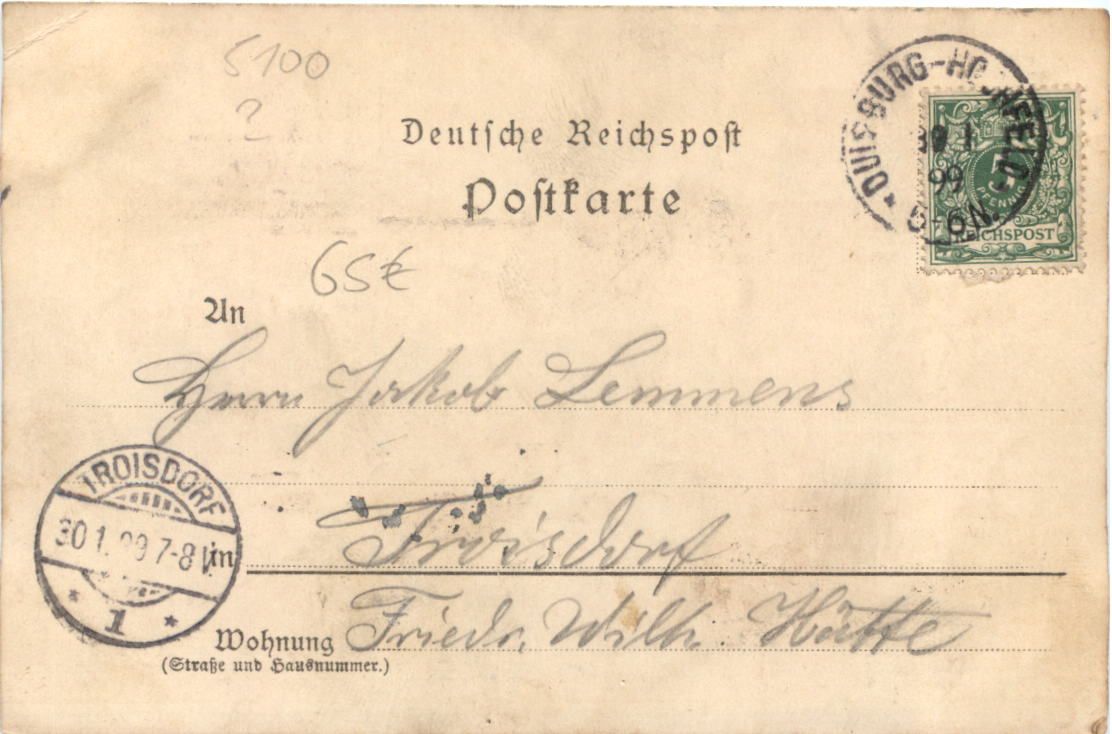 5100
2
Deutsche Reichspost
Postkarte
65€
DUISBURG-HOCHFELD
99
5-6N.
PFENNIG
REICHSPOST
An
Herrn Jakob Lemmens
TROISDORF
30 1. 99 7-8 V.
1
in Troisdorf
Wohnung Friedr. Wilh. Hütte
(Straße und Hausnummer.)